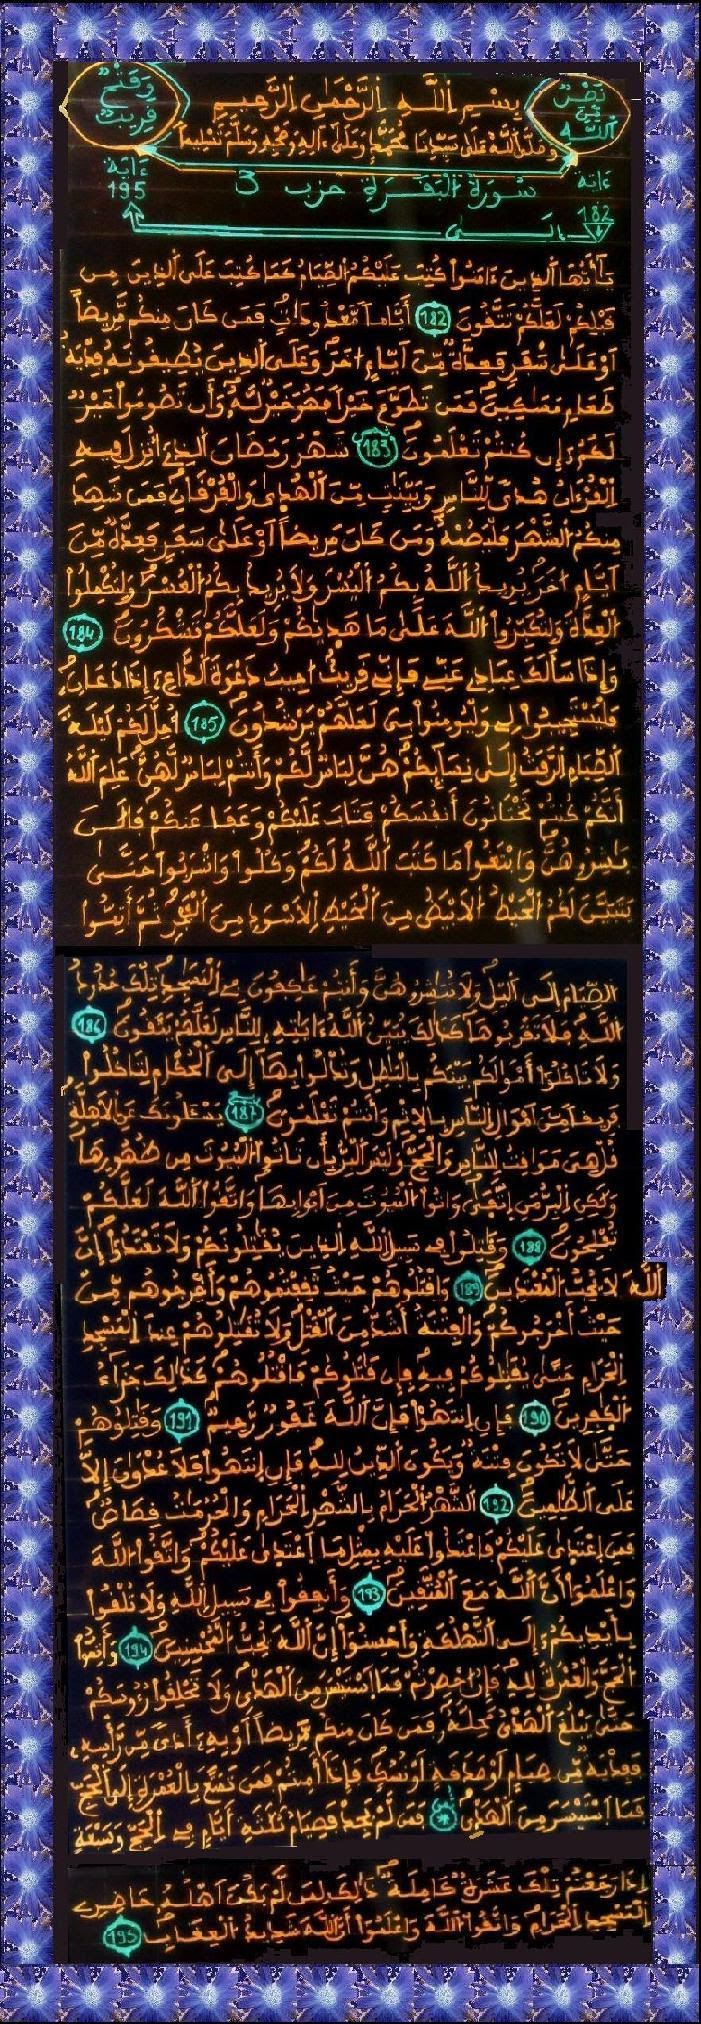 نصر من الله
بسم الله الرحمن الرحيم
وفتح قريب
وصلى الله على سيدنا محمد وعلى ءاله وصحبه وسلم تسليما
ءاية 182
سورة البقرة حزب 3
ءاية 195
إلــــى
يـأيها الذين ءامنوا كتب عليكم الصيام كما كتب على الذين من
قبلكم لعلكم تتقون 182 أياما معدودات فمن كان منكم مريضا
أو على سفر فعدة من أيام اخر وعلى الذين يطيقونه فدية
طعام مسكين فمن تطوع خيرا فهو خير له وأن تصوموا خير
لكم إن كنتم تعلمون 183 شهر رمضان الذي أنزل فيه
القرءان هدى للناس وبينات من الهدى والفرقان فمن شهد
منكم الشهر فليصمه ومن كان مريضا أو على سفر فعدة من
أيام اخر يريد الله بكم اليسر ولا يريد بكم العسر ولتكملوا
العدة ولتكبروا الله على ما هديكم ولعلكم تشكرون 184
وإذا سألك عبادي عني فإني قريب أجيب دعوة الداع إذا دعان
فليستجيبوا لي وليومنوا بي لعلهم يرشدون 185 أحل لكم ليلة
الصيام الرفث إلى نسائكم هن لباس لكم وأنتم لباس لهن علم الله
أنكم كنتم تختانون أنفسكم فتاب عليكم وعفا عنكم فالـن
بـشروهن وابتغوا ما كتب الله لكم وكلوا واشربوا حتى
يتبين لكم الخيط الابيض من الخيط الاسود من الفجر ثم أتموا
الصيام إلى اليل ولا تبـشروهن وأنتم عـكفون في المسـجد تلك حدود
الله فلا تقربوها كذالك يبين الله ءايـته للناس لعلهم يتقون 186
ولا تاكلوا أموالكم بينكم بالبـطل وتدلوا بها إلى الحكام لتاكلوا
فريقا من أموال الناس بالاثم وأنتم تعلمون 187 يسـلونك عن الاهلة
قل هي مواقيت للناس والحج وليس البر بأن تاتوا البيوت من ظهورها
ولكن البر من اتقى واتوا البيوت من أبوابها واتقوا الله لعلكم
تفلحون 188 وقـتلوا في سبيل الله الذين يقـتلونكم ولا تعتدوا إن
الله لا يحب المعتدين 189 واقتلوهم حيث ثقفتموهم وأخرجوهم من
حيث أخرجوكم والفتنة أشد من القتل ولا تقـتلوهم عند المسجد
الحرام حتى يقـتلوكم فيه فإن قـتلوكم فاقتلوهم كذالك جزاء
الكـفرين 190 فإن انتهوا فإن الله غفور رحيم 191 وقـتلوهم
حتى لا تكون فتنة ويكون الدين لله فإن انتهوا فلا عدوان إلا
على الظـلمين 192 الشهر الحرام بالشهر الحرام والحرمـت قصاص
فمن اعتدى عليكم فاعتدوا عليه بمثل ما اعتدى عليكم واتقوا الله
واعلموا أن الله مع المتقين 193 وأنفقوا في سبيل الله ولا تلقوا
بأيديكم إلى التهلكة وأحسنوا إن الله يحب المحسنين 194 وأتموا
الحج والعمرة لله فإن احصرتم فما استيسر من الهدي ولا تحلقوا رءوسكم
حتى يبلغ الهدي محله فمن كان منكم مريضا أو به أذى من رأسه
ففدية من صيام أو صدقة أو نسك فإذا أمنتم فمن تمتع بالعمرة إلى الحج
فما استيسر من الهدي فمن لم يجد فصيام ثلـثة أيام في الحج وسبعة
إذا رجعتم تلك عشرة كاملة ذالك لمن لم يكن أهله حاضري
المسجد الحرام واتقوا الله واعلموا أن الله شديد العقاب 195